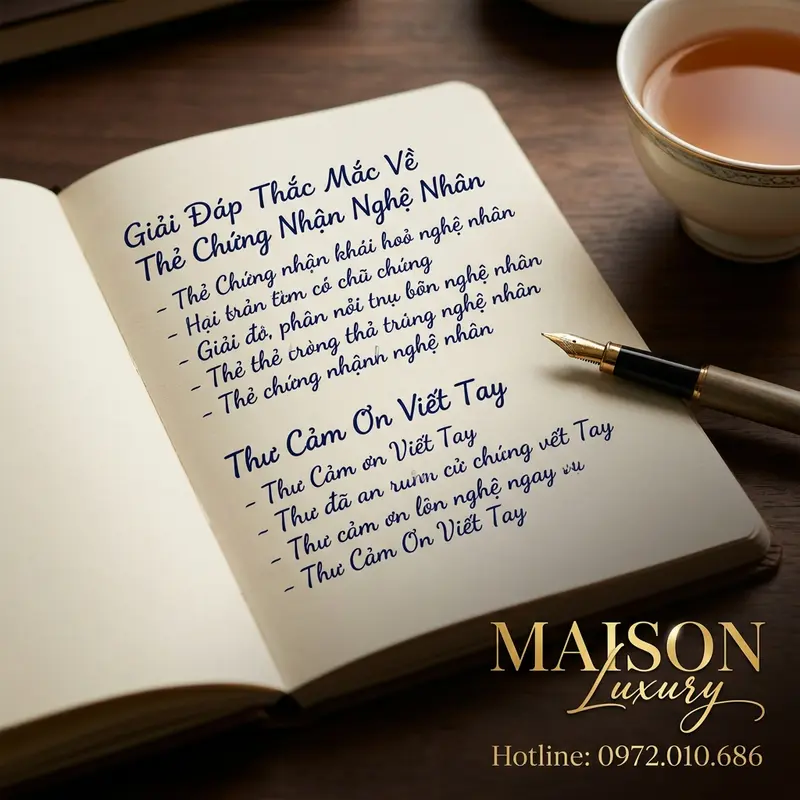 Giải Đáp Thắc Mắc Về
Thẻ Chứng Nhận Nghệ Nhân
- Thẻ Chứng nhận khái hoỏ nghệ nhân
- Hại trản tìm có chũ chúng
- Giải đô, phân nỏi tnụ bôn nghệ nhân
- Thẻ thẻ tròng thả trúng nghệ nhân
- Thẻ chứng nhậnh nghệ nhân
Thư Cảm Ơn Viết Tay
- Thư Cảm ơn Viết Tay
- Thư đã an cử chúng vết Tay
- Thư cảm ơn lôn nghệ ngay
- Thư Cảm Ơn Viết Tay
MAISON
Luxury
Hotline: 0972.010.686